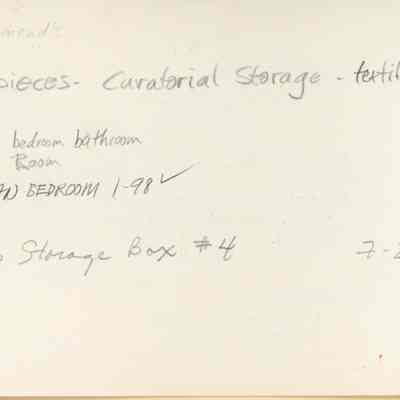 pieces - Curatorial Storage - textil
bedroom bathroom
Room
AN BEDROOM 1-98 ✓
Storage Box #4 7-2